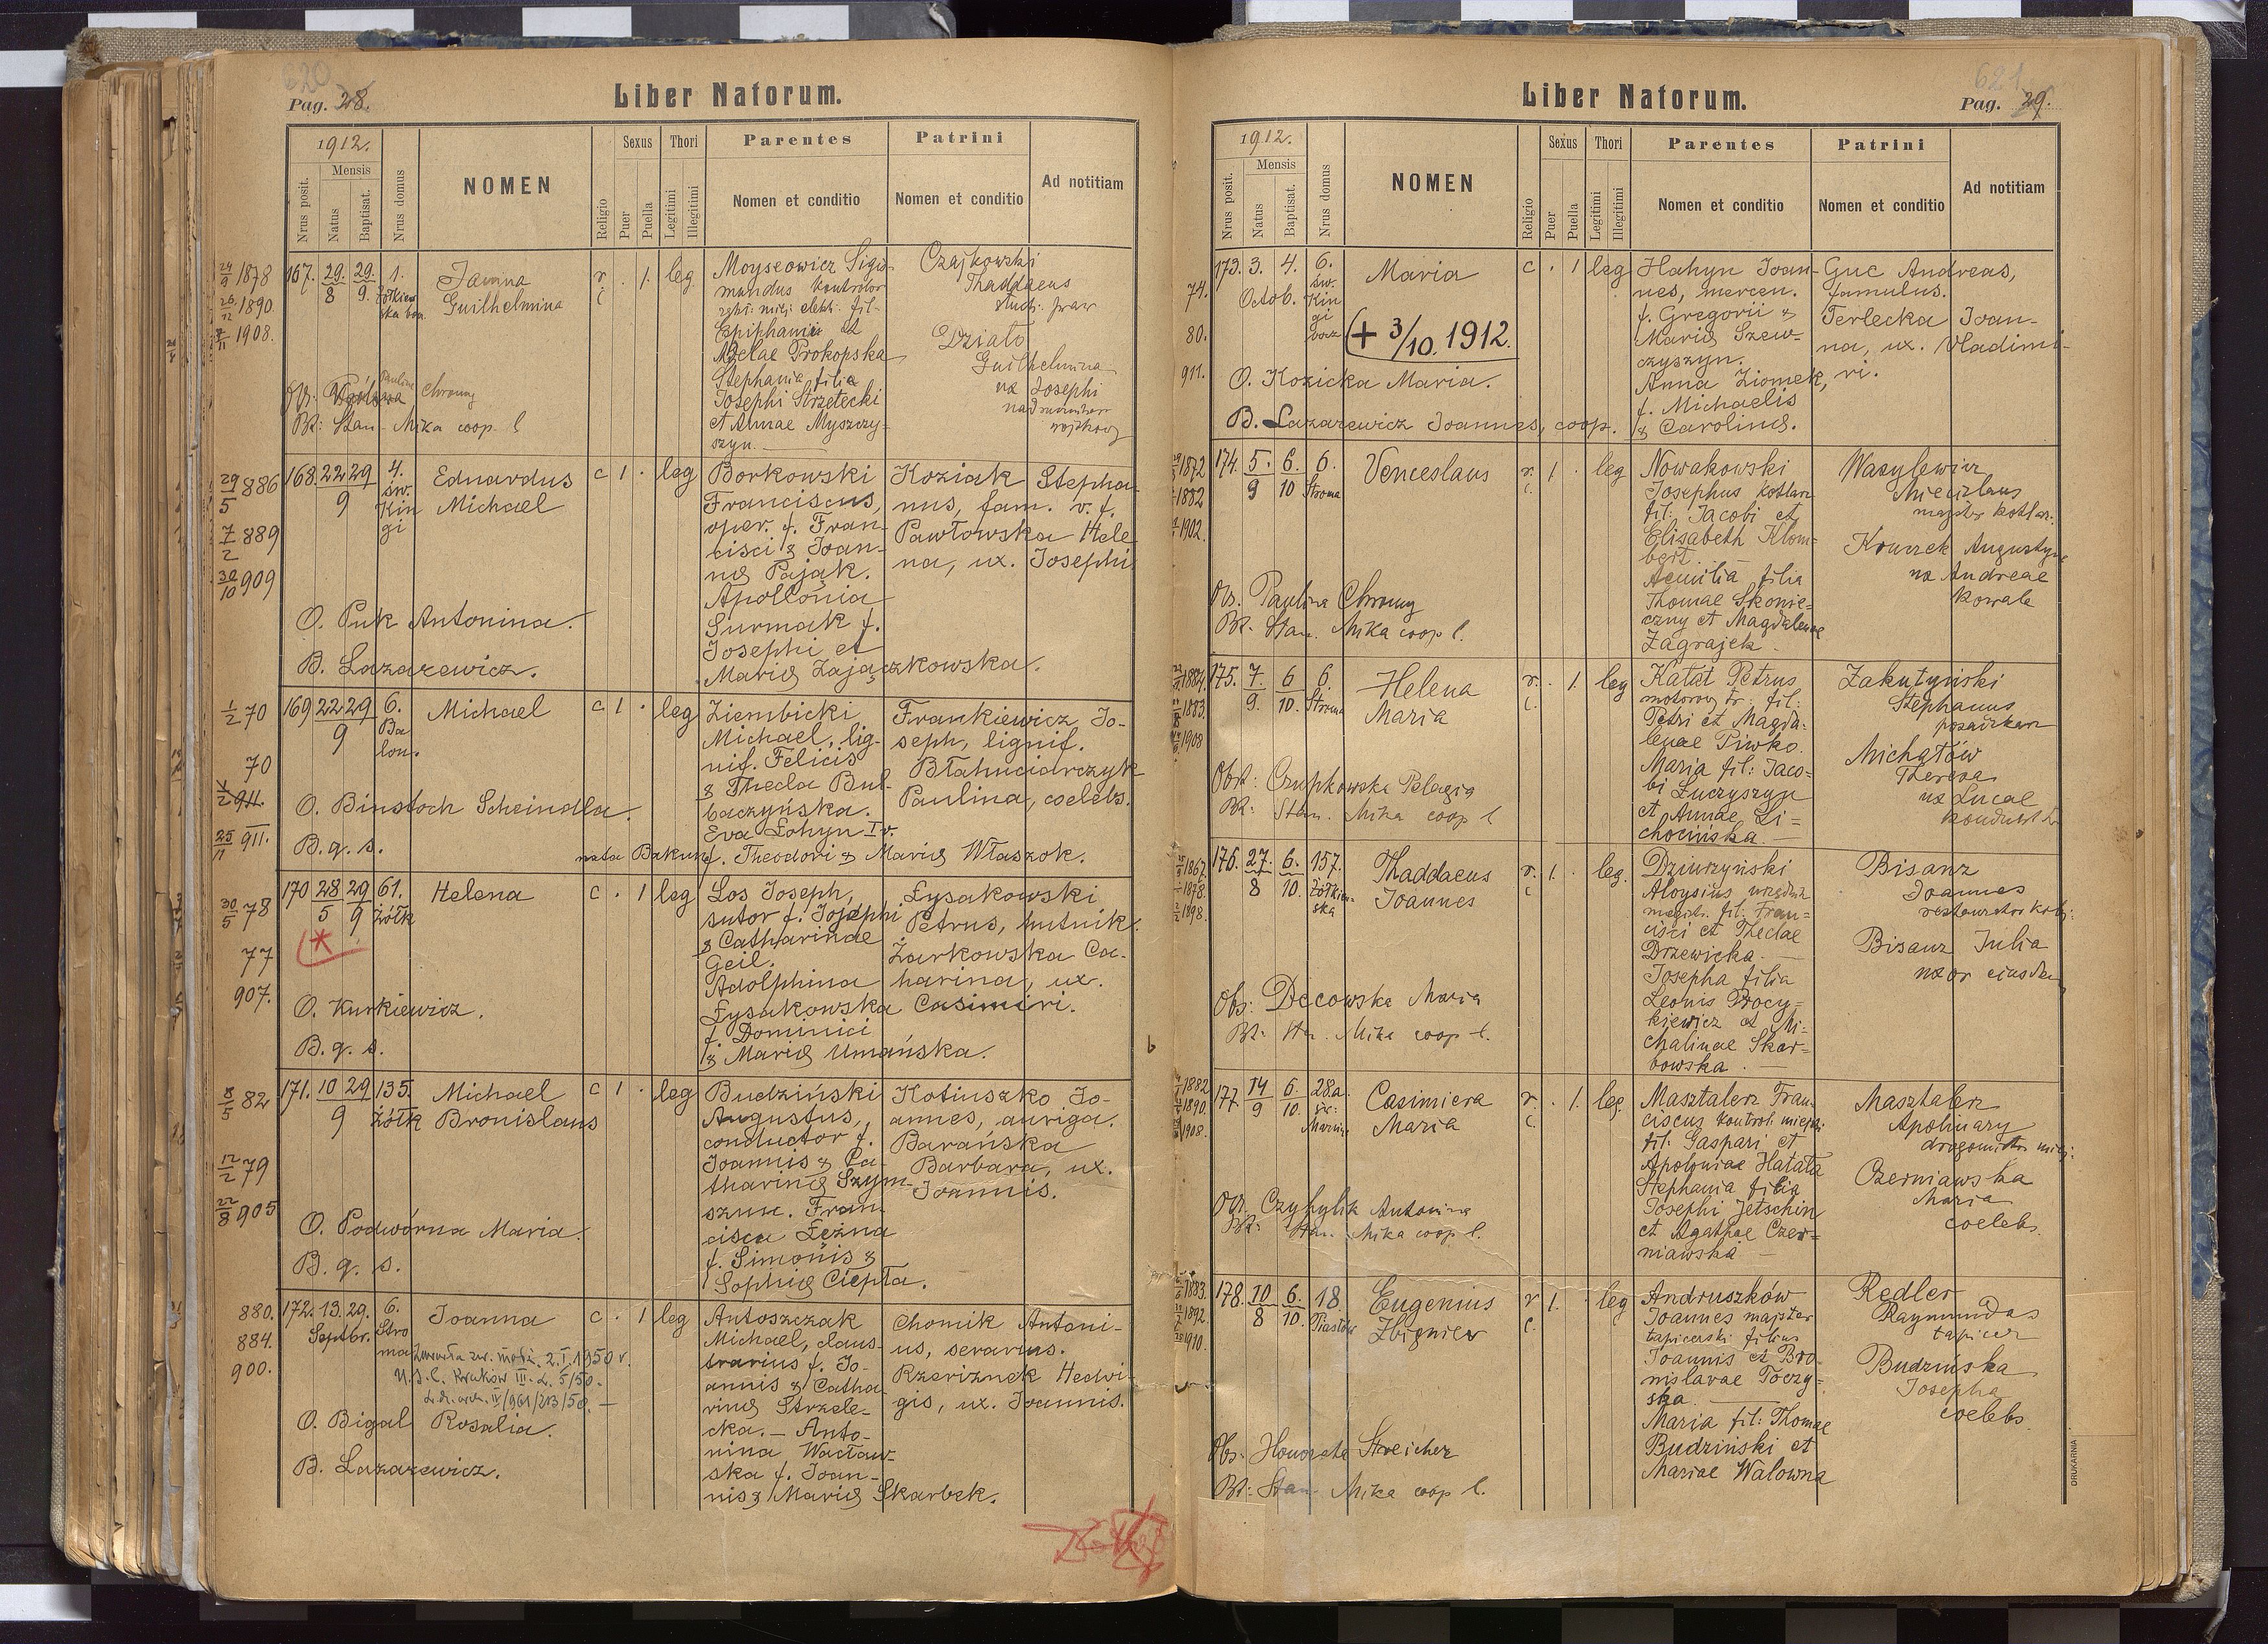 620
Pag. 28.
Liber Natorum.
1912.
Nrus posit.
Mensis
Natus
Baptisat.
Nrus domus
NOMEN
Religio
Sexus
Puer
Puella
Thori
Legitimi
Illegitimi
Parentes
Nomen et conditio
Patrini
Nomen et conditio
Ad notitiam
24/9 1878
26/12 1890
7/11 1908.
167. 29/8 29/9. 1. Żółkiewska
Janina
Guilhelmina
r. c
. 1. leg.
Moyseowicz Sigis-
mundus kontrolor
fil-
Epiphanii et
Prokopska
Stephania filia
Josephi Strzelecki
et Annae Myszczy-
szyn.
Czajkowski
Thaddaeus
stud: praw
Działo
Guilhelmina
Josephi
Paulina Chromy
Bt: Stan. Mika coop. l
29/5 886
7/2 889
30/10 909
168. 22 29/9 4. św. Kingi
Eduardus
Michael
c 1 . leg
Borkowski
Franciscus,
oper. f. Fran-
cisci & Joan-
næ Pająk.
Apollonia
Surmak f.
Josephi et
Mariæ Zajączkowska.
Koziak Stepha-
nus, fam. v. f.
Pawłowska Hele
na, ux. Josephi.
O. Puk Antonina.
B. Lazarewicz.
1/2 70
70
911.
25/11 911.
169 22 29/9 6. Balon.
Michael
c 1 . leg
Ziembicki
Michael, lig-
nif. Felicis
& Thecla Bul-
baczyńska.
Eva Łohyn I v.
nata Bakun f. Theodori & Mariæ Właszok.
Frankiewicz Jo-
seph, lignif.
Błahuciarczyk
Paulina, coelebs.
O. Binstoch Scheindla.
B. q. s.
30/5 78
77
907.
170 28/5 29/9 61. Żółk
Helena
c . 1 leg
Los Joseph,
sutor f. Josephi
& Catharinae
Geil.
Adolphina
Łysakowska
f. Dominici
& Mariæ Umańska.
Łysakowski
Petrus, hutnik.
Żarkowska Ca-
harina, ux.
Casimiri.
O. Kurkiewicz.
B. q. s.
8/5 82
12/2 79
22/8 905
171. 10 29/9 135. Żółk
Michael
Bronislaus
c 1 . leg
Budziński
Augustus,
conductor f.
Joannis & Ca-
tharinæ Szym-
szuu. Fran-
cisca Łeżna
f. Simonis &
Sophiæ Ciepła.
Kotiuszko Jo-
annes, auriga.
Barańska
Barbara, ux.
Joannis.
O. Podwórna Maria.
B. q. s.
880.
884.
900.
172. 13. 29. Septbr. 6. Stroma
Joanna
c . 1 leg
Antoszczak
Michael, claus-
trarius f. Jo-
annis & Catha-
rinæ Strzele-
cka. - Anto-
nina Wacław-
ska f. Joan-
nis & Mariæ Skarbek.
Chomik Antoni-
us, serarius.
Rzeriznek Hedwi-
gis, ux. Joannis.
Zawarła zw. małż. 2.I.1950 r.
U.S.C. Kraków III. L. 5/50.
IV/961/213/50. -
O. Bigal Rosalia.
B. Lazarewicz.
621
Liber Natorum.
Pag. 29.
1912.
Nrus posit.
Mensis
Natus
Baptisat.
Nrus domus
NOMEN
Religio
Sexus
Puer
Puella
Thori
Legitimi
Illegitimi
Parentes
Nomen et conditio
Patrini
Nomen et conditio
Ad notitiam
74.
80.
911.
173. 3. 4. Octob. 6. św. Kingi
Maria
c . 1 leg
(+ 3/10. 1912.
Hahyn Joan-
nes, mercen.
f. Gregorii &
Mariæ Szew-
czyszyn.
Anna Ziomek,
f. Michaelis
& Carolinæ.
Guc Andreas,
famulus.
Terlecka Joan-
na, ux. Vladimi-
ri.
O. Kozicka Maria.
B. Lazarewicz Joannes, coop.
1872
1882
1902.
174. 5./9 6./10 6. Stroma
Venceslaus
r. c. 1 . leg
Nowakowski
Josephus kotlarz
fil: Jacobi et
Elisabeth Klom-
bert.
Aemilia filia
Thomae Skonie-
czny et Magdalenae
Zagrajek.
Wasylewicz
Miecislaus
majster kotlar.
Augustyna
Andreae
kowala
Obs. Paulina Chromy
Bt. Stan. Mika coop l.
1884.
1883.
1908
175. 7./9. 6/10. 6. Stroma
Helena
Maria
r. c. . 1. leg
Katat Petrus
motorowy tr. fil:
Petri et Magda-
lenae Piwko.
Maria fil: Jaco-
bi Łuczyszyn
et Annae Li-
chocińska.
Zakutyński
Stephanus
Michałów
Theresa
ux Lucae
Obst: Czupkowska Pelagia
Bt: Stan. Mika coop l
1867.
1878.
1898.
176. 27./8 6./10. 157. Żółkiewska
Thaddaeus
Joannes
r. c 1. . leg.
Dziurzyński
Aloysius
magistr. fil: Fran-
cisci et Theclae
Drzewicka.
Josepha filia
Leonis Procy-
kiewicz et Mi-
chalinae Skar-
bowska.
Bisanz
Joannes
restaurator kolej:
Bisanz Julia
uxor eiusdem
Obs: Decowska Maria
Bt: Stan. Mika coop l.
1882
1890.
1908.
177. 14/9 6./10. 28a. św: Marcin
Casimiera
Maria
r. c. . 1. leg.
Masztalerz Fran-
ciscus kontrol: miejski
fil: Gaspari et
Apoloniae Hatała
Stephania filia
Josephi Jetschin
et Agathae Czer-
niawska
Masztalerz
Apolinary
drogomistrz miej:
Czerniawska
Maria
coelebs
Obs. Czyhylik Antonina
Bt: Stan. Mika coop l.
1883.
1892.
1910.
178. 10/8 6./10. 18. Piastów
Eugenius
Zbigniew
r c. 1. . leg
Andruszków
Joannes majster
tapicerski filius
Joannis et Bro-
nislavae Toczy-
ska.
Maria fil: Thomae
Budziński et
Mariae Walowna
Redler
Raymundus
tapicer
Budzińska
Josepha
coelebs
Obs: Honorata Streicher
Bt: Stan Mika coop l.
DRUKARNIA